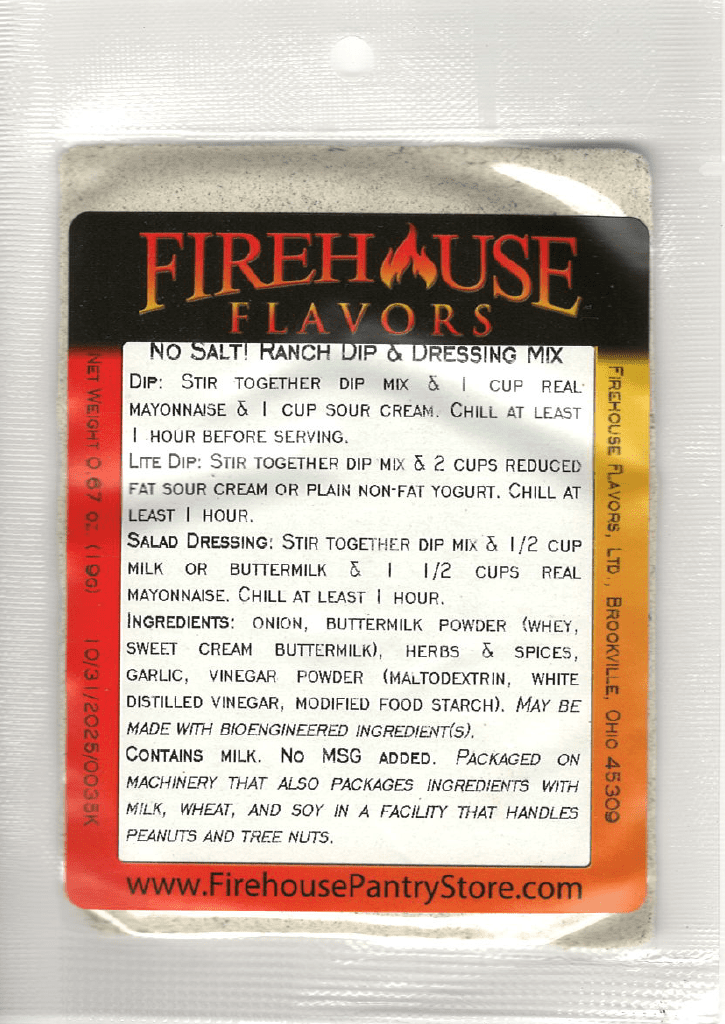 FIREHOUSE
FLAVORS
NO SALT! RANCH DIP & DRESSING MIX
DIP: STIR TOGETHER DIP MIX & 1 CUP REAL
MAYONNAISE & 1 CUP SOUR CREAM. CHILL AT LEAST
1 HOUR BEFORE SERVING.
LITE DIP: STIR TOGETHER DIP MIX & 2 CUPS REDUCED
FAT SOUR CREAM OR PLAIN NON-FAT YOGURT. CHILL AT
LEAST 1 HOUR.
SALAD DRESSING: STIR TOGETHER DIP MIX & 1/2 CUP
MILK OR BUTTERMILK & 1 1/2 CUPS REAL
MAYONNAISE. CHILL AT LEAST 1 HOUR.
INGREDIENTS: ONION, BUTTERMILK POWDER (WHEY,
SWEET CREAM BUTTERMILK), HERBS & SPICES,
GARLIC, VINEGAR POWDER (MALTODEXTRIN, WHITE
DISTILLED VINEGAR, MODIFIED FOOD STARCH). MAY BE
MADE WITH BIOENGINEERED INGREDIENT(S).
CONTAINS MILK. NO MSG ADDED. PACKAGED ON
MACHINERY THAT ALSO PACKAGES INGREDIENTS WITH
MILK, WHEAT, AND SOY IN A FACILITY THAT HANDLES
PEANUTS AND TREE NUTS.
NET WEIGHT 0.67 OZ (19G) 10/31/2025/0035K
FIREHOUSE FLAVORS, LTD., BROOKVILLE, OHIO 45309
www.FirehousePantryStore.com